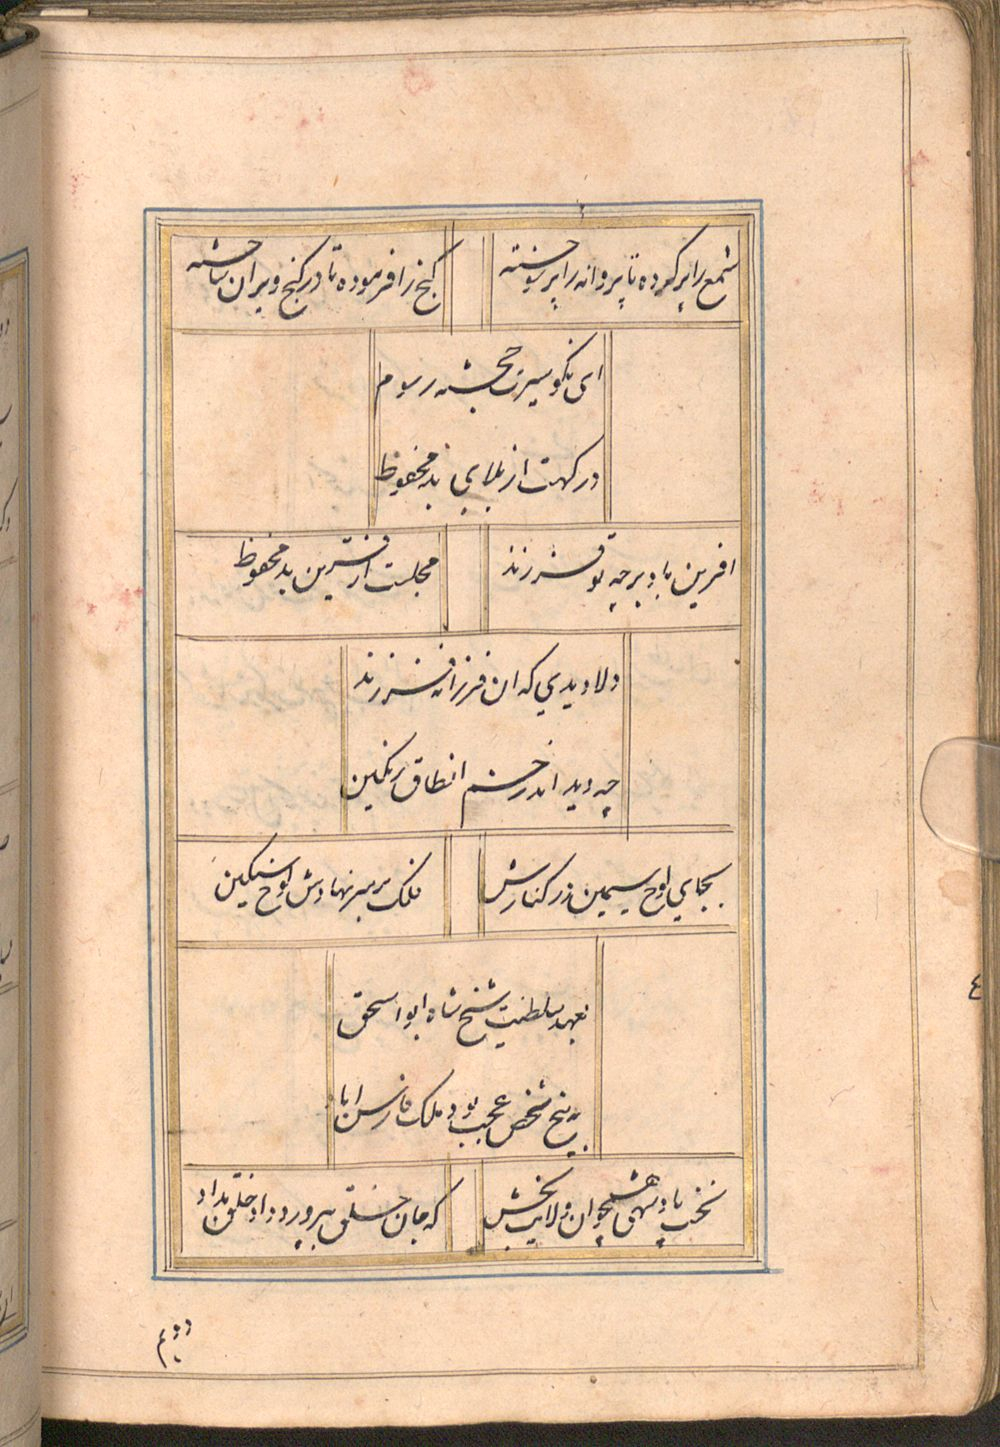 شمع را پر کرده تا پروانه را پر سوخته
کنج را فرموده تا در کنج ویران ساخته
ای نکو سیرت خجسته رسوم
درکهت از بلای بد محفوظ
افرین باد بر چه تو فرزند
مجلست از قرین بد محفوظ
دلا دیدی که ان فرزانه فرزند
چه دید اندر خم این طاق رنکین
بجای لوح سیمین در کنارش
فلک بر سر نهادش لوح سنکین
بعهد سلطنت شیخ شاه ابو اسحق
به پنج شخص عجب بود ملک فارس اباد
نخست پادشهی همچو ان ولایت بخش
که جان خلق بپرورد و داد خلق بداد
دویم